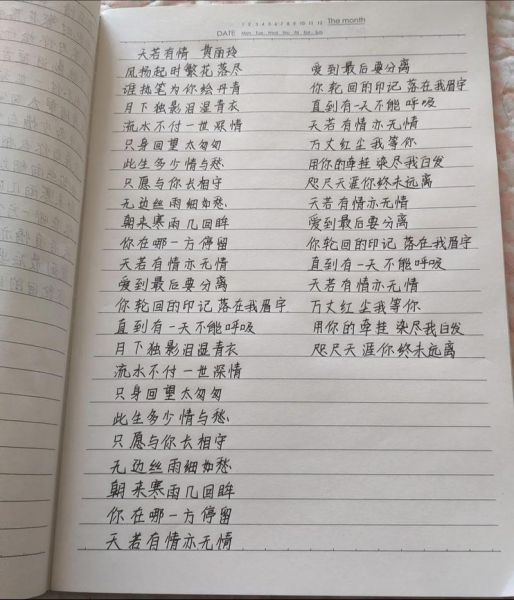 1 2 3 4 5 6 7 8 9 10 11 12 The month
DATE Mon Tue Wed Thu Fri Sat Sun
天若有情 黄丽玲
风扬起时繁花落尽
谁执笔为你绘丹青
月下独影泪湿青衣
流水不付一世深情
只身回望太匆匆
此生多少情与愁
只愿与你长相守
无边丝雨细如愁
朝来寒雨几回眸
你在哪一方停留
天若有情亦无情
爱到最后要分离
你轮回的印记 落在我眉宇
直到有一天不能呼吸
月下独影泪湿青衣
流水不付一世深情
只身回望太匆匆
此生多少情与愁
只愿与你长相守
无边丝雨细如愁
朝来寒雨几回眸
你在哪一方停留
天若有情亦无情
爱到最后要分离
你轮回的印记 落在我眉宇
直到有一天不能呼吸
天若有情亦无情
万丈红尘我等你
用你的牵挂 染尽我白发
咫尺天涯你终未远离
天若有情亦无情
爱到最后要分离
你轮回的印记 落在我眉宇
直到有一天不能呼吸
天若有情亦无情
万丈红尘我等你
用你的牵挂 染尽我白发
咫尺天涯你终未远离